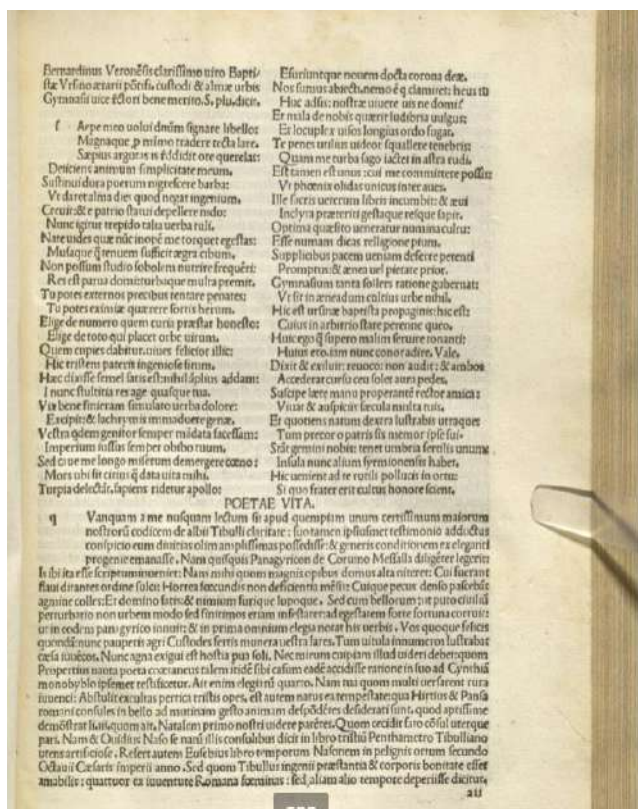 Bernardinus Veronēsis clarissimo uiro Bapti/
stæ Vrsino ærarii pōtif. custodi & almæ urbis
Gymnasii uice rectori bene merito. S. plu. dicit.
Arpe meo uolui dnūm signare libello:
Magnaque mimo tradere tecta lare.
Sæpius argutas is
ore querelas:
Deiiciens animum simplicitate meum.
Sustinui dura poetum nigrescere barba:
Vt daret alma dies quod negat ingenium.
e patrio statui depellere nido:
Nunc igitur trepido talia uerba tuli.
Nate uides quæ nūc inopē me torquet egestas:
Musaque tenuem sufficit ægra cibum.
Non possum studio sobolem nutrire frequēti:
Res est parua domi: turbaque multa premit.
Tu potes externos precibus tentare penates:
Tu potes eximiæ quærere sortis herum.
Elige de numero quem curia præstat honesto:
Elige de toto qui placet orbe uirum.
Quem cupies dabitur. uiues felicior illic:
Hic tristem pateris ingeniose
Hæc dixisse semel satis est: nihil āplius addam:
I nunc stultitia res age quasque tua.
Vix bene finieram simulato uerba dolore:
Excipit: & lachrymis immaduere genæ.
Vestra genitor semper mādata facessam:
Imperium iussus semper obibo tuum.
Sed me longo miserum demergere cœno:
Mors ubi sit citius data uita mihi.
Turpia delectāt. sapiens ridetur apollo:
Esuriuntque nouem docta corona deæ.
Nos sumus abiecti. nemo ē clamitet: heus tu
Huc adsis: nostræ uiuere uis ne domi?
Et mala de nobis quærit ludibria uulgus:
Et locuplex uisos longius ordo fugat.
Te penes utilius uideor squallere tenebris:
Quam me turba sago iactet in astra rudi.
Est tamen est unus: cui me committere possis:
Vt phœnix olidas unicus inter aues.
Ille sacris ueterum libris incumbit: & æui
Inclyta præteriti gestaque resque sapit.
Optima quæsito ueneratur numina cultu:
Esse numam dicas relligione pium.
Supplicibus pacem ueniam deferre petenti
Promptus: & ænea uel pietate prior.
Gymnasium tanta sollers ratione gubernat:
Vt sit in æneadum cultius urbe nihil.
Hic est ursinæ baptista propaginis: hic est:
Cuius in arbitrio stare perenne queo.
Huic ego supero malim seruire tonanti:
Huius ero. iam nunc cono radire. Vale.
Dixit & exiluit: reuoco: non audit: & ambos
Accederat cursu ceu soles aura pedes.
Suscipe læte manu properantē rector amica:
Viuat & auspiciis sæcula multa tuis.
Et quotiens natum dextera lustrabis utraque:
Tum precor o patris sis memor ipse sui.
Stāt gemini nobis: tenet umbria sterilis unum:
Insula nunc alium syrmionensis habet.
Hic ueniet ad te rutili pollucis in ortu:
Si quo frater erit cultus honore sciens.
POETAE VITA.
q Vanquam a me nusquam lectum sit apud quempiam unum certissimum maiorum
nostrorū codicem de albii Tibulli claritate: suo tamen ipsiusmet testimonio adductus
conspicio eum diuitias olim amplissimas possedisse: & generis conditionem ex eleganti
progenie emanasse. Nam quisquis Panagyricon de Coruino Messalla diligēter legerit:
Is ibi ita esse scriptum inueniet: Nam mihi quom magnis opibus domus alta niteret: Cui fuerant
flaui ditantes ordine sulci: Horrea fœcundis non deficientia messis: Cuique pecus denso pascebāt
agmine colles: Et domino satis: & nimium furique lupoque. Sed cum bellorum: ut puto ciuiliū
perturbatio non urbem modo sed finitimos etiam infestaret: ad egestatem forte fortuna corruit:
ut in eodem panagyrico innuit: & in prima omnium elegia notat his uerbis. Vos quoque felicis
quondā: nunc pauperis agri Custodes fertis munera uestra lares. Tum uitula innumeros lustrabat
cæsa iuuēcos. Nunc agna exigui est hostia pua soli. Nec mirum cuipiam illud uideri debet: quom
Propertius nauta poeta coætaneus talem itidē sibi casum eadē accidisse ratione in suo ad Cynthiā
monobyblo ipsemet testificetur. Ait enim elegiarū quarto. Nam tua quom multi uersarent rura
iuuenci: Abstulit excultas pertica tristis opes. est autem natus ea tempestate: qua Hirtius & Pansa
romani consules in bello ad mutinam gesto animam despōdētes desiderati sunt. quod aptissime
demōstrat li. iii. quom ait. Natalem primo nostri uidere parētes. Quom cecidit fato cōsul uterque
pari. Nam & Ouidius Naso se natū illis consulibus dicit in libro tristiū Penthametro Tibulliano
utens artificiose. Refert autem Eusebius libro temporum Nasonem in pelignis ortum secundo
Octauii Cæsaris imperii anno. Sed quom Tibullus ingenii præstantia & corporis bonitate esset
amabilis: quattuor ex iuuentute Romana fœminas: sed aliam alio tempore deperiisse dicitur.
aii